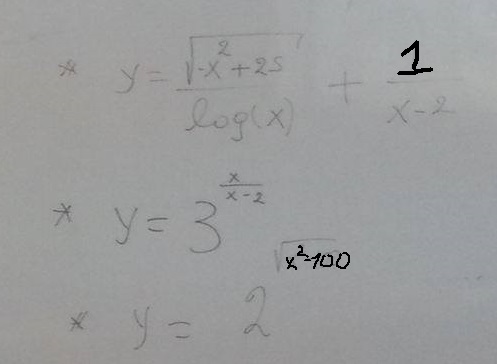 * y = √(-x²+25) / log(x) + 1 / (x-2)
* y = 3^(x/(x-2))
* y = 2^√(x²-100)